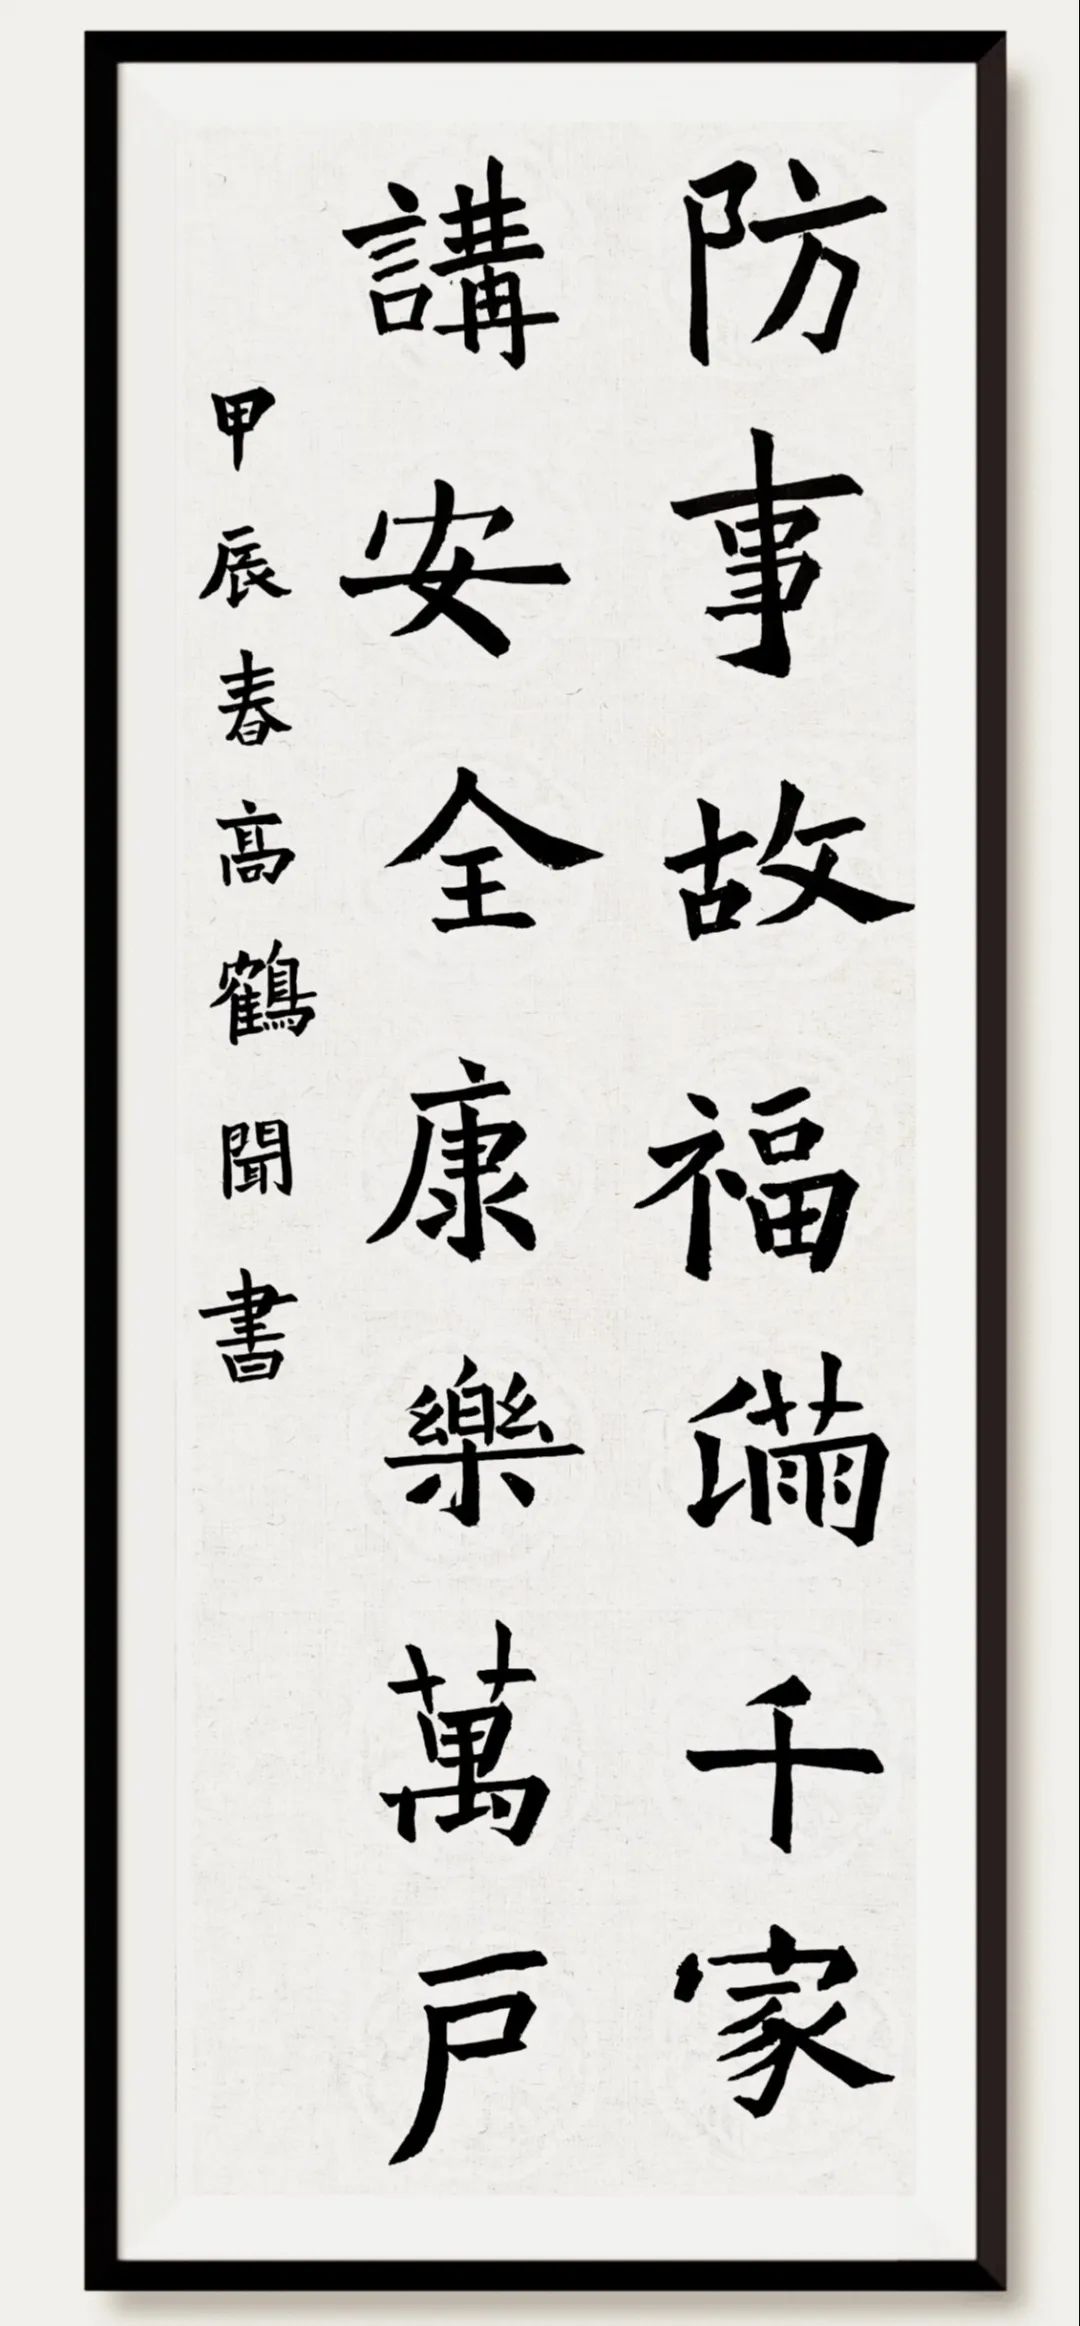 防事故福滿千家
講安全康樂萬戶
甲辰春高鶴聞書